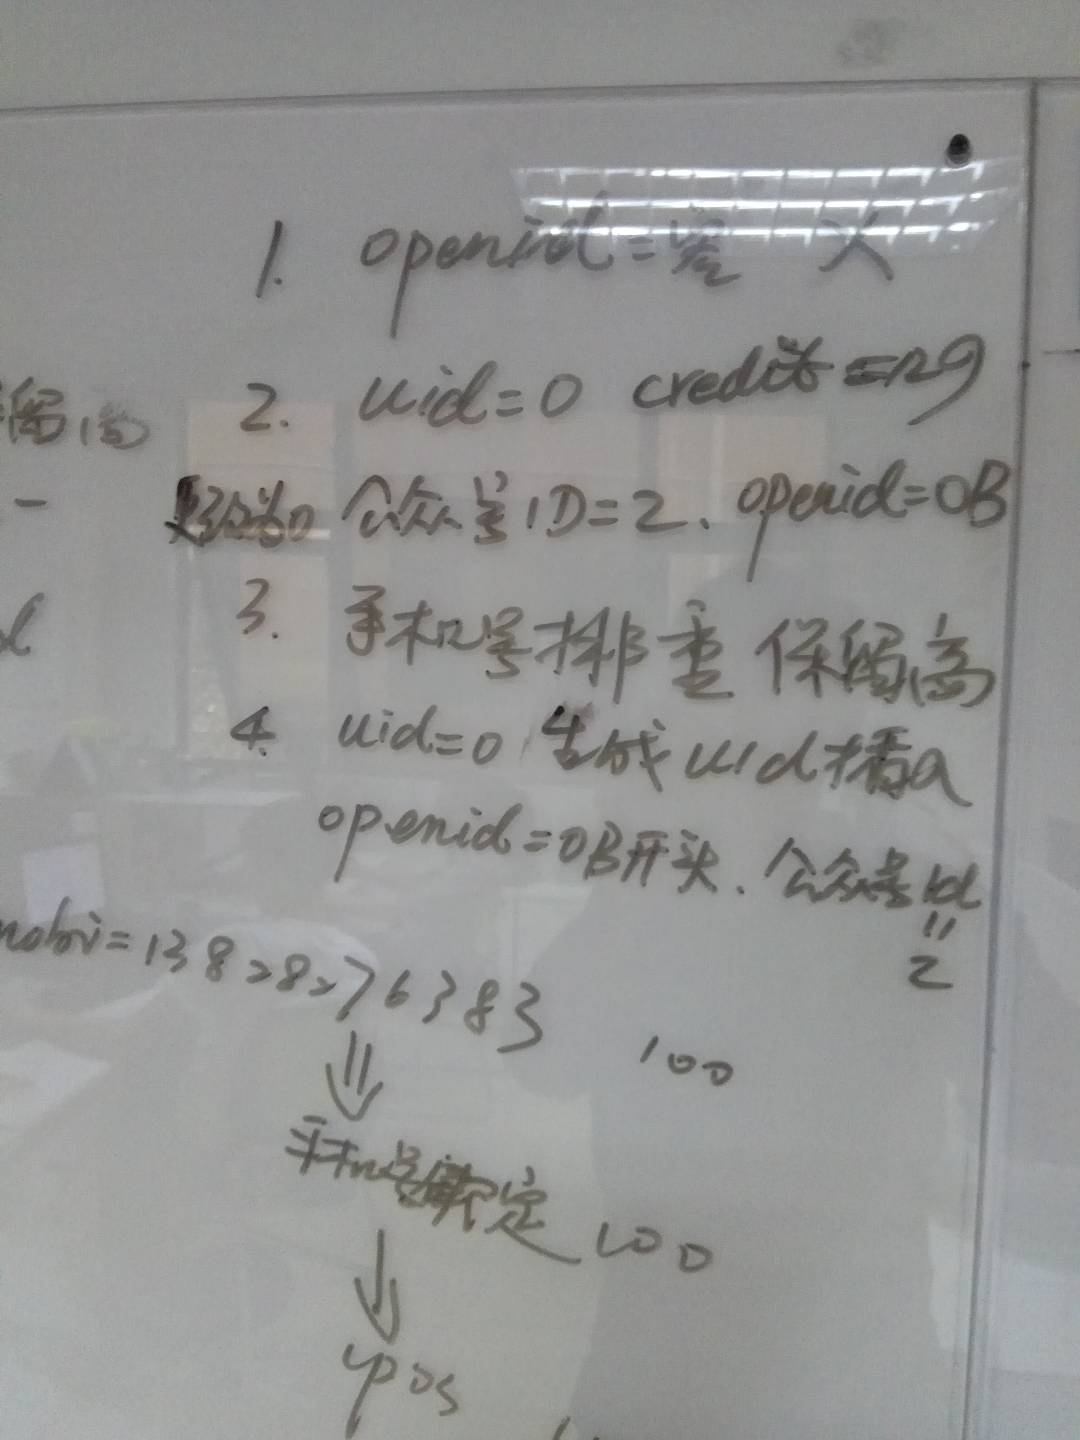 1. openid=空
2. uid=0 credit=129
公众号ID=2、openid=OB
3. 手机号排重 保留高
4. uid=0 生成uid插入
openid=OB开头、公众号id
=
2
mobi=13828276383
100
手机号绑定 100
ypos